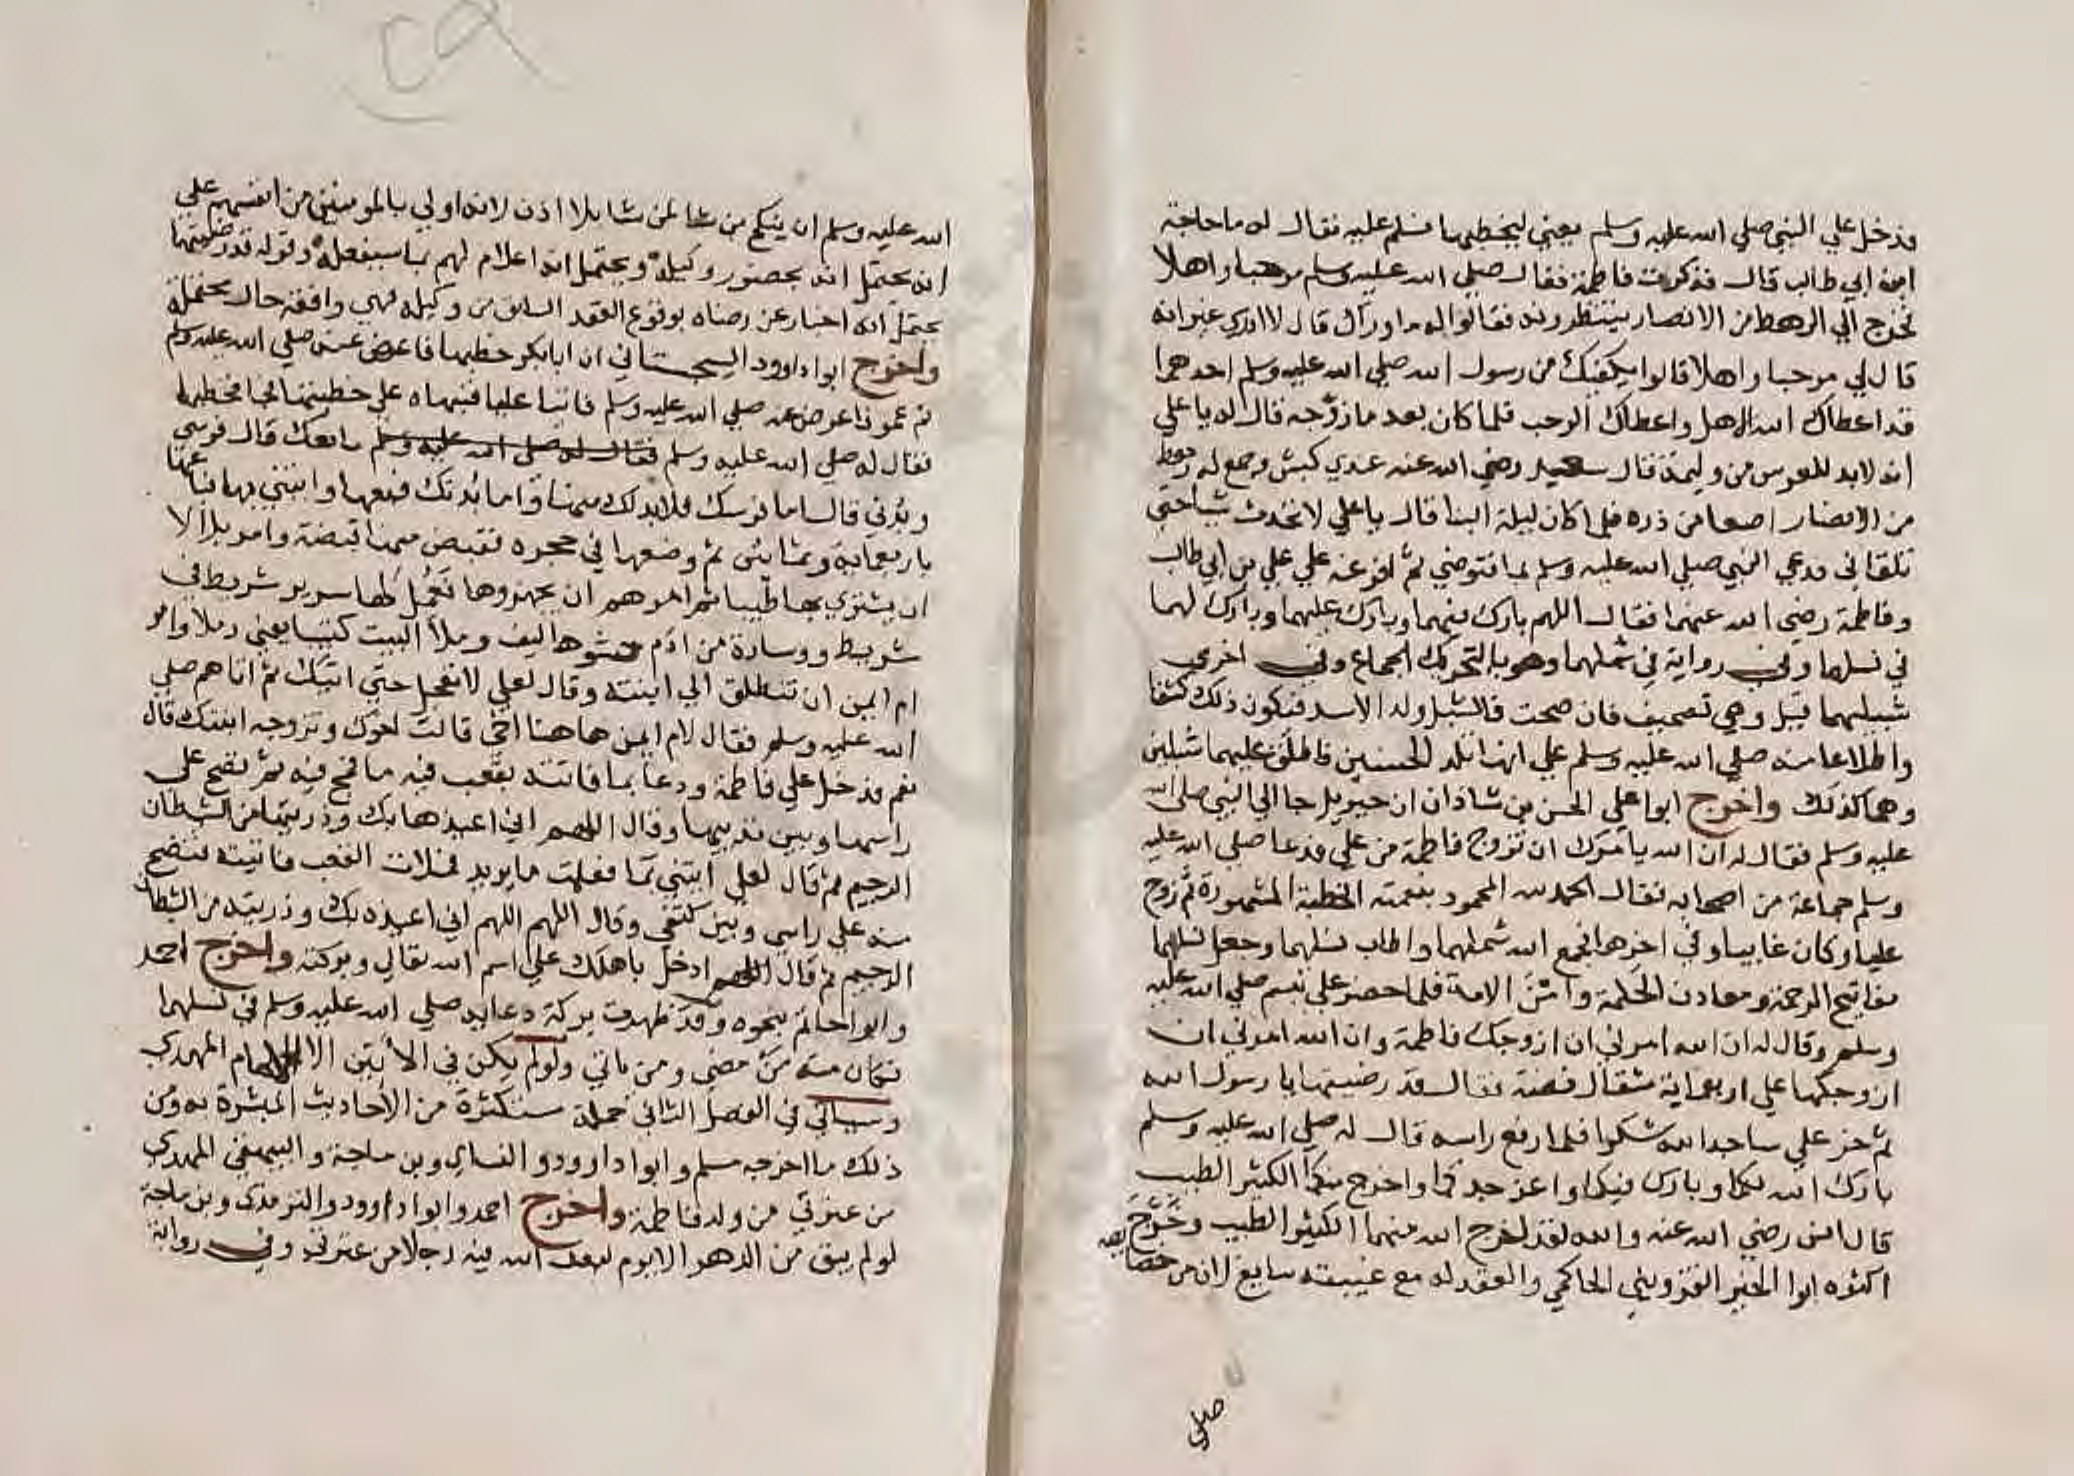 فدخل علي النبي صلي الله عليه وسلم يعني ليخطبها فسلم عليه فقال له ما حاجة
ابن ابي طالب قال فذكرت فاطمة فقال صلي الله عليه وسلم مرحبا واهلا
فخرج الي الرهط من الانصار ينتظرونه فقالوا له ما وراك قال لا ادري غير انه
قال لي مرحبا واهلا قالوا يكفيك من رسول الله صلي الله عليه وسلم احدهما
قد اعطاك الله الاهل واعطاك الرحب فلما كان بعد ما زوجه قال له يا علي
انه لا بد للعرس من وليمة قال سعيد رضي الله عنه عندي كبش وجمع له رهط
من الانصار اصعا من ذره فلما كان ليلة البنا قال يا علي لا تحدث شيا حتي
تلقاني فدعي النبي صلي الله عليه وسلم بما فتوضي ثم افرغه علي علي بن ابي طالب
وفاطمة رضي الله عنهما فقال اللهم بارك فيهما وبارك عليهما وبارك لهما
في نسلهما وفي رواية في شملهما وهو بالتحريك الجماع وفي اخري
شبليهما قيل وهي تصحيف فان صحت فالشبل ولد الاسد فيكون ذلك كشفا
واطلاعا منه صلي الله عليه وسلم علي انها تلد الحسنين فاطلق عليهما شبلين
وهما كذلك واخرج ابوا علي الحسن بن شاذان ان جبريل جا الي النبي صلي الله
عليه وسلم فقال له ان الله يامرك ان تزوج فاطمة من علي فدعا صلي الله عليه
وسلم جماعة من اصحابه فقال الحمد لله المحمود بنعمته الخطبة المشهورة ثم زوج
عليا وكان غايبا وفي اخرها فجمع الله شملهما واطاب نسلهما وجعل نسلهما
مفاتيح الرحمة ومعادن الحكمة وامن الامة فلما حضر علي تبسم صلي الله عليه
وسلم وقال له ان الله امرني ان ازوجك فاطمة وان الله امرني ان
ازوجكها علي اربعماية مثقال فضة فقال قد رضيتها يا رسول الله
ثم خر علي ساجدا لله شكرا فلما رفع راسه قال له صلي الله عليه وسلم
بارك الله لكما وبارك فيكما واعز جدكما واخرج منكما الكثير الطيب
قال انس رضي الله عنه والله لقد اخرج الله منهما الكثير الطيب وخرج
اكثره ابوا الخير القزويني الحاكمي والعقد له مع غيبته سايغ لان من خصايصه
صلي
الله عليه وسلم ان ينكح من شا لمن شا بلا اذن لانه اولي بالمومنين من انفسهم علي
انه يحتمل انه بحضور وكيله ويحتمل انه اعلام لهم بما سيفعله وقوله قد رضيتها
يحتمل انه اخبار عن رضاه بوقوع العقد السابق من وكيله فهي واقعة حال محتملة
واخرج ابوا داوود السجستاني ان ابا بكر خطبها فاعرض عنه صلي الله عليه وسلم
ثم عمر فاعرض عنه صلي الله عليه وسلم فاتيا عليا فنبهاه علي خطبتها فجا فخطبها
فقال له صلي الله عليه وسلم فقال له صلي الله عليه وسلم ما معك قال فرسي
وبدني قال اما فرسك فلا بد لك منها واما بدنك فبعها واتيني بها فباعها
باربعماية وثمانين ثم وضعها في حجره فقبض منها قبضة وامر بلالا
ان يشتري بها طيبا ثم امرهم ان يجهزوها فعمل لها سرير شريط في
شريط ووسادة من ادم حشوها ليف وملا البيت كتبا يعني رملا وامر
ام ايمن ان تنطلق الي ابنته وقال لعلي لا تعجل حتي اتيك ثم اتاهم صلي
الله عليه وسلم فقال لام ايمن هاهنا اخي قالت اخوك وتزوجه ابنتك قال
نعم فدخل علي فاطمة ودعا بما فاتته بقعب فيه ما فمج فيه ثم نضح علي
راسها وبين ثدييها وقال اللهم اني اعيذها بك وذريتها من الشيطان
الرجيم ثم قال لعلي ايتني بما فعلمت ما يريد فملات القعب فاتيته فنضح
منه علي راسي وبين كتفي وقال اللهم اللهم اني اعيذه بك وذريته من الشيطان
الرجيم ثم قال اللهم ادخل باهلك علي اسم الله تعالي وبركته واخرج احمد
وابوا حاتم نحوه وقد ظهرت بركة دعايه صلي الله عليه وسلم في نسلهما
فكان منه من مضي ومن ياتي ولو لم يكن في الاتين الا الامام المهدي
وسياتي في الفصل الثاني جملة مستكثرة من الاحاديث المبشرة به ومن
ذلك ما اخرجه مسلم وابوا داوود والنساي وبن ماجة والبيهقي المهدي
من عترتي من ولد فاطمة واخرج احمد وابوا داوود والترمذي وبن ماجة
لو لم يبق من الدهر الا يوم لبعث الله فيه رجلا من عترتي وفي رواية